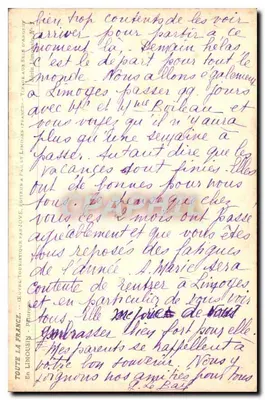 bien trop contents de les voir
arriver pour partir à ce
moment là. Demain hélas
c'est le départ pour tout le
monde. Nous allons également
à Limoges passer qq. jours
avec Mr et Mme Boileau et
vous voyez qu'il n'y aura
plus qu'une semaine à
passer. Autant dire que les
vacances sont finies. Elles
ont été bonnes pour nous
tous. Je pense que chez
vous ces mois ont passé
agréablement et que vous êtes
tous reposés des fatigues
de l'année. A. Marie sera
contente de rentrer à Limoges
et en particulier de vous voir
tous, elle
embrasser bien fort pour elle.
Mes parents se rappellent à
votre bon souvenir. Nous y
joignons nos amitiés pour tous
TOUTE LA FRANCE.
En LIMOUSIN